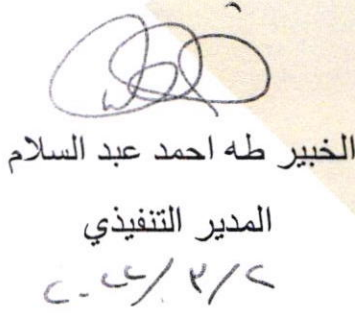 الخبير طه احمد عبد السلام
المدير التنفيذي
٢٠٢٢/٣/٢